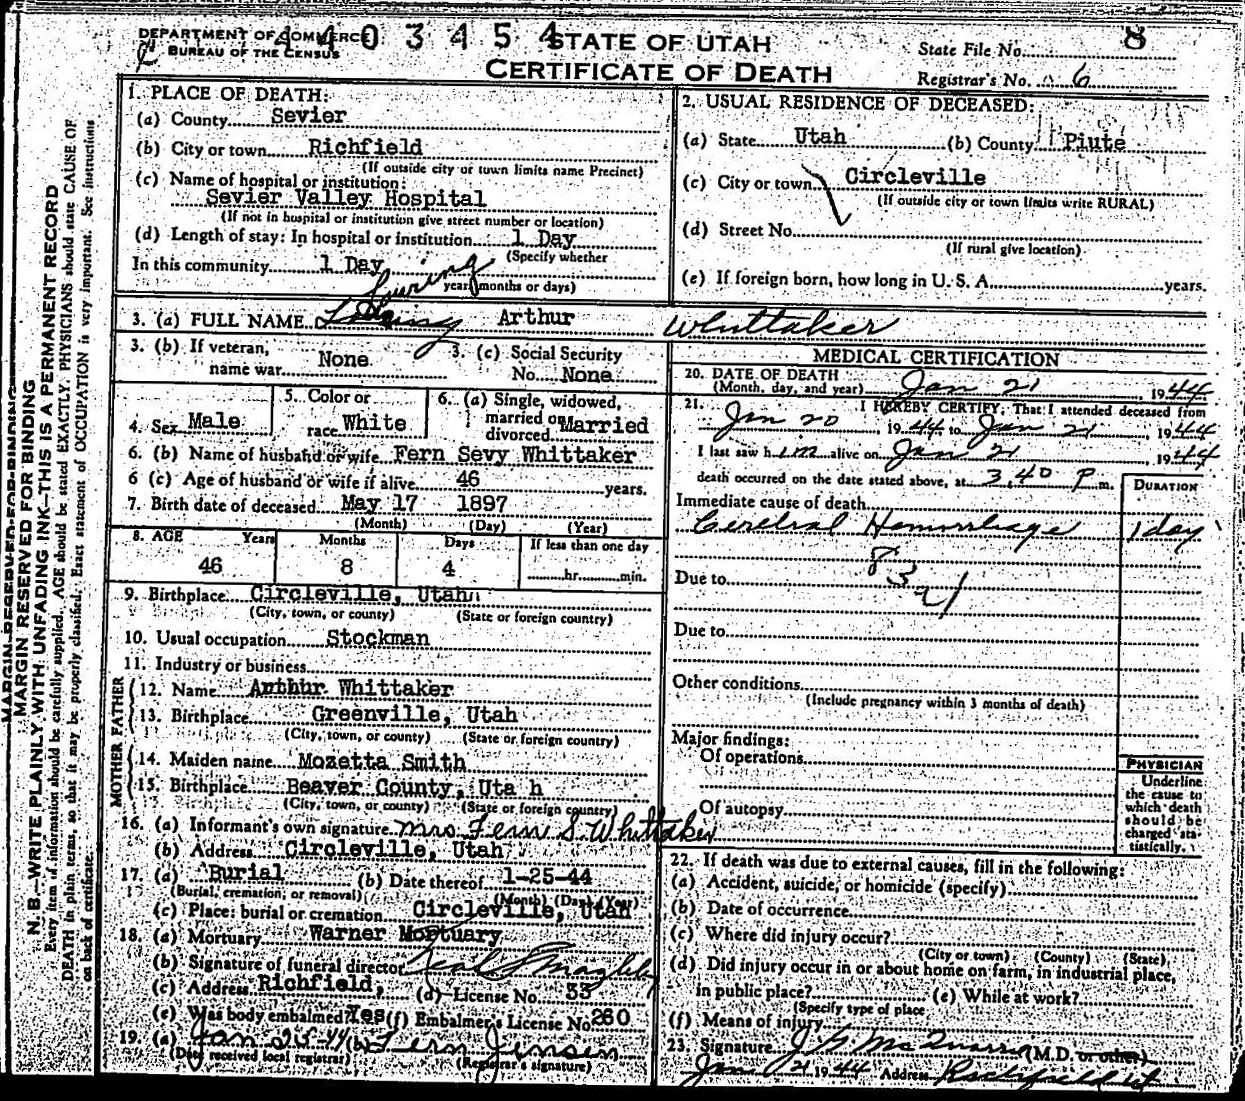 DEPARTMENT OF COMMERCE
BUREAU OF THE CENSUS
4 4 0 3 4 5 4
STATE OF UTAH
CERTIFICATE OF DEATH
State File No. 8
Registrar's No. 6
MARGIN RESERVED FOR BINDING
N. B.—WRITE PLAINLY WITH UNFADING INK—THIS IS A PERMANENT RECORD
Every item of information should be carefully supplied. AGE should be stated EXACTLY. PHYSICIANS should state CAUSE OF
DEATH in plain terms, so that it may be properly classified. Exact statement of OCCUPATION is very important. See instructions
on back of certificate.
1. PLACE OF DEATH:
(a) County Sevier
(b) City or town Richfield
(If outside city or town limits name Precinct)
(c) Name of hospital or institution:
Sevier Valley Hospital
(If not in hospital or institution give street number or location)
(d) Length of stay: In hospital or institution 1 Day
(Specify whether
In this community 1 Day
years months or days)
2. USUAL RESIDENCE OF DECEASED:
(a) State Utah (b) County Piute
(c) City or town Circleville
(If outside city or town limits write RURAL)
(d) Street No.
(If rural give location)
(e) If foreign born, how long in U. S. A. years.
Louring
3. (a) FULL NAME Arthur Whittaker
3. (b) If veteran, name war None
3. (c) Social Security No. None
4. Sex Male
5. Color or race White
6. (a) Single, widowed, married or divorced Married
6. (b) Name of husband or wife Fern Sevy Whittaker
6 (c) Age of husband or wife if alive 46 years.
7. Birth date of deceased May 17 1897
(Month) (Day) (Year)
8. AGE Years Months Days If less than one day
46 8 4 hr. min.
9. Birthplace Circleville, Utah
(City, town, or county) (State or foreign country)
10. Usual occupation Stockman
11. Industry or business
FATHER
12. Name Arthur Whittaker
13. Birthplace Greenville, Utah
(City, town, or county) (State or foreign country)
MOTHER
14. Maiden name Mozetta Smith
15. Birthplace Beaver County, Uta h
(City, town, or county) (State or foreign country)
16. (a) Informant's own signature Mrs. Fern S. Whittaker
(b) Address Circleville, Utah
17. (a) Burial (b) Date thereof 1-25-44
(Burial, cremation, or removal) (Month) (Day) (Year)
(c) Place: burial or cremation Circleville, Utah
18. (a) Mortuary Warner Mortuary
(b) Signature of funeral director
(c) Address Richfield, (d) License No. 33
(e) Was body embalmed? Yes (f) Embalmer's License No. 260
19. (a) Jan 25-44 (b) Fern Jensen
(Date received local registrar) (Registrar's signature)
MEDICAL CERTIFICATION
20. DATE OF DEATH
(Month, day, and year) Jan 21 1944
21. I HEREBY CERTIFY, That I attended deceased from
Jan 20 1944 to Jan 21, 1944
I last saw him alive on Jan 21 1944
death occurred on the date stated above, at 3,40 P m.
DURATION
Immediate cause of death
Cerebral Hemorrhage 1 day
Due to
Due to
Other conditions
(Include pregnancy within 3 months of death)
Major findings:
Of operations
Of autopsy
PHYSICIAN
Underline
the cause to
which death
should be
charged sta-
tistically.
22. If death was due to external causes, fill in the following:
(a) Accident, suicide, or homicide (specify)
(b) Date of occurrence
(c) Where did injury occur?
(City or town) (County) (State)
(d) Did injury occur in or about home on farm, in industrial place,
in public place? (e) While at work?
(Specify type of place
(f) Means of injury
23. Signature (M.D. or other)
Jan 21 1944 Address Richfield Ut